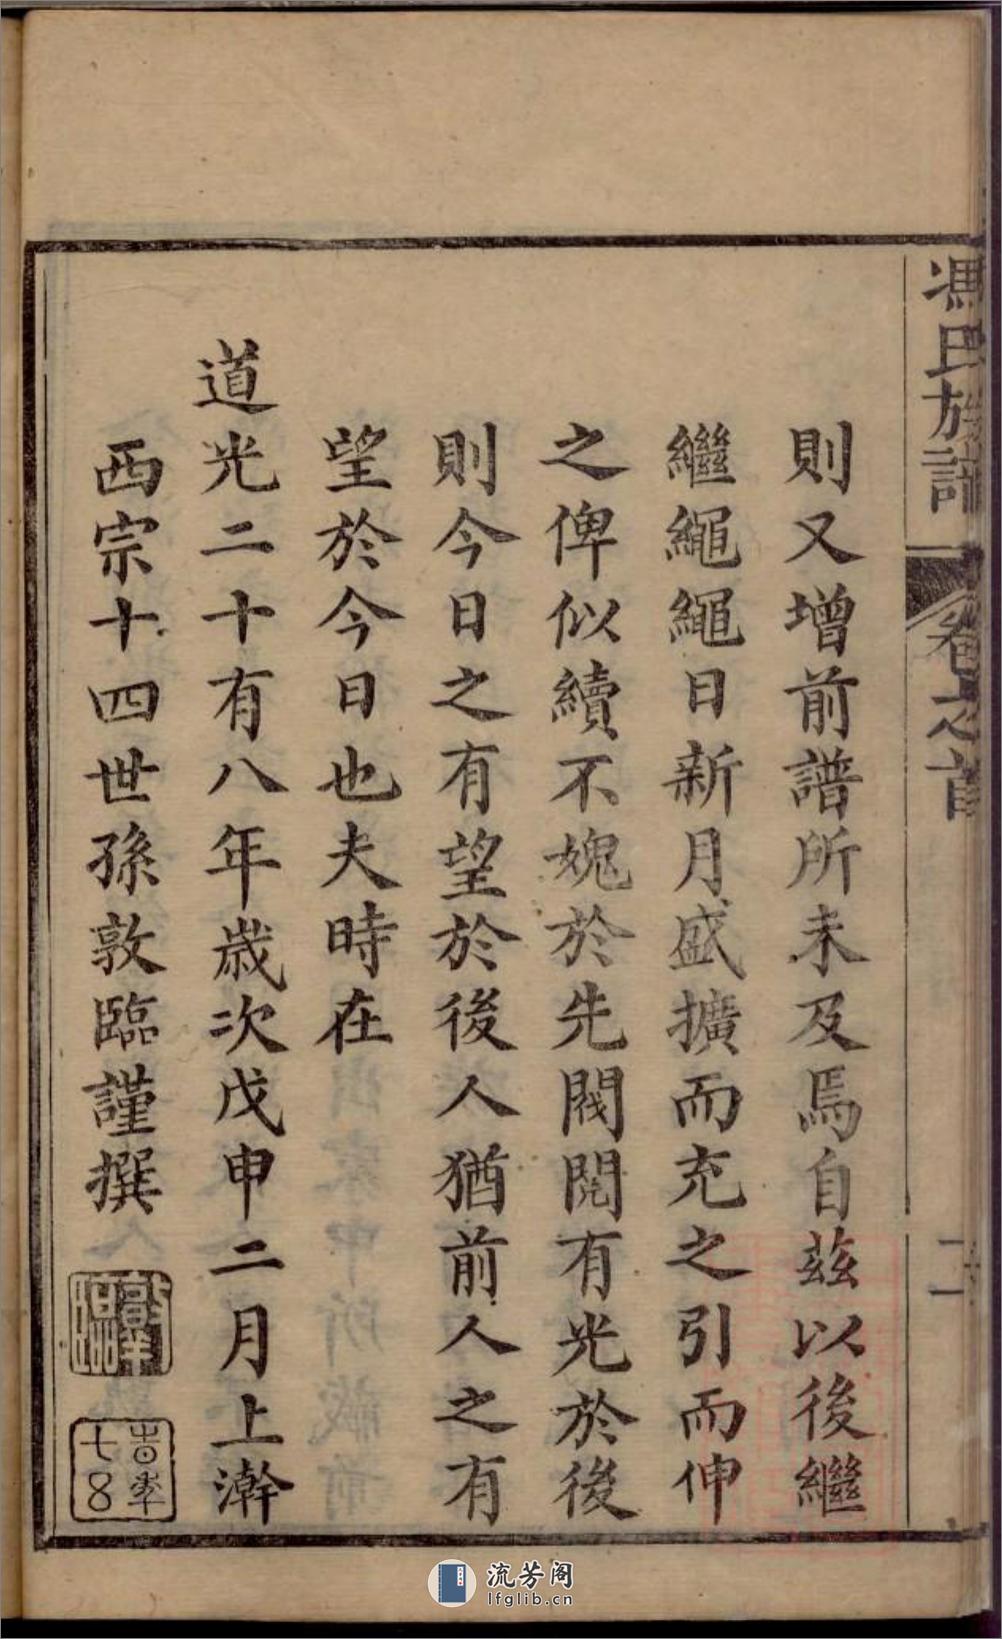 馮氏族譜 卷之首 二
則又增前譜所未及焉自茲以後繼
繼繩繩日新月盛擴而充之引而伸
之俾似續不媿於先閥閱有光於後
則今日之有望於後人猶前人之有
望於今日也夫時在
道光二十有八年歲次戊申二月上澣
西宗十四世孫敦臨謹撰
流芳阁
lfglib.cn